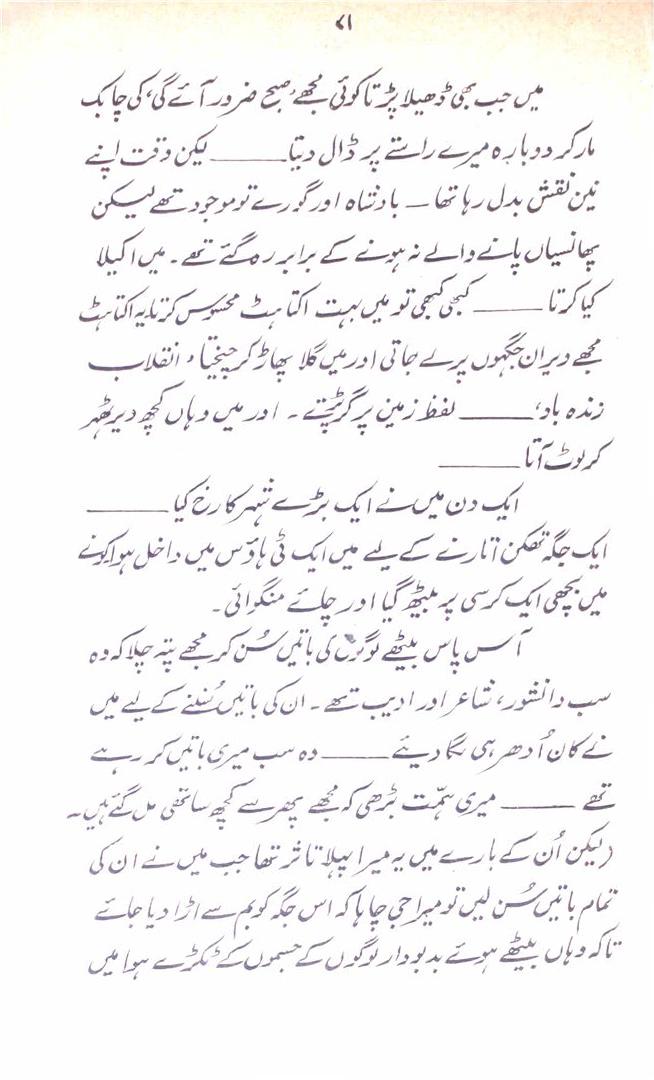 ۷۱
میں جب بھی ڈھیلا پڑتا کوئی مجھے ’صبح ضرور آئے گی‘ کی چابک
مار کر دوبارہ میرے راستے پر ڈال دیتا ـــــــ لیکن وقت اپنے
نین نقش بدل رہا تھا ـ بادشاہ اور گورے تو موجود تھے لیکن
پھانسیاں پانے والے نہ ہونے کے برابر رہ گئے تھے۔ میں اکیلا
کیا کرتا ـــــــ کبھی کبھی تو میں بہت اکتاہٹ محسوس کرتا یہ اکتاہٹ
مجھے ویران جگہوں پر لے جاتی اور میں گلا پھاڑ کر چیختا ’ انقلاب
زندہ باد‘ ـــــــ لفظ زمین پر گر پڑتے ۔ اور میں وہاں کچھ دیر ٹھہر
کر لوٹ آتا ـــــــ
ایک دن میں نے ایک بڑے شہر کا رخ کیا ـــــــ
ایک جگہ تھکن اتارنے کے لیے میں ایک ٹی ہاؤس میں داخل ہوا کونے
میں بچھی ایک کرسی پر بیٹھ گیا اور چائے منگوائی۔
آس پاس بیٹھے لوگوں کی باتیں سُن کر مجھے پتہ چلا کہ وہ
سب دانشور، شاعر اور ادیب تھے ۔ ان کی باتیں سُننے کے لیے میں
نے کان اُدھر ہی لگا دیئے ـــــــ وہ سب میری باتیں کر رہے
تھے ـــــــ میری ہمّت بڑھی کہ مجھے پھر سے کچھ ساتھی مل گئے ہیں۔
(لیکن اُن کے بارے میں یہ میرا پہلا تاثر تھا جب میں نے ان کی
تمام باتیں سُن لیں تو میرا جی چاہا کہ اس جگہ کو بم سے اڑا دیا جائے
تاکہ وہاں بیٹھے ہوئے بدبودار لوگوں کے جسموں کے ٹکڑے ہوا میں